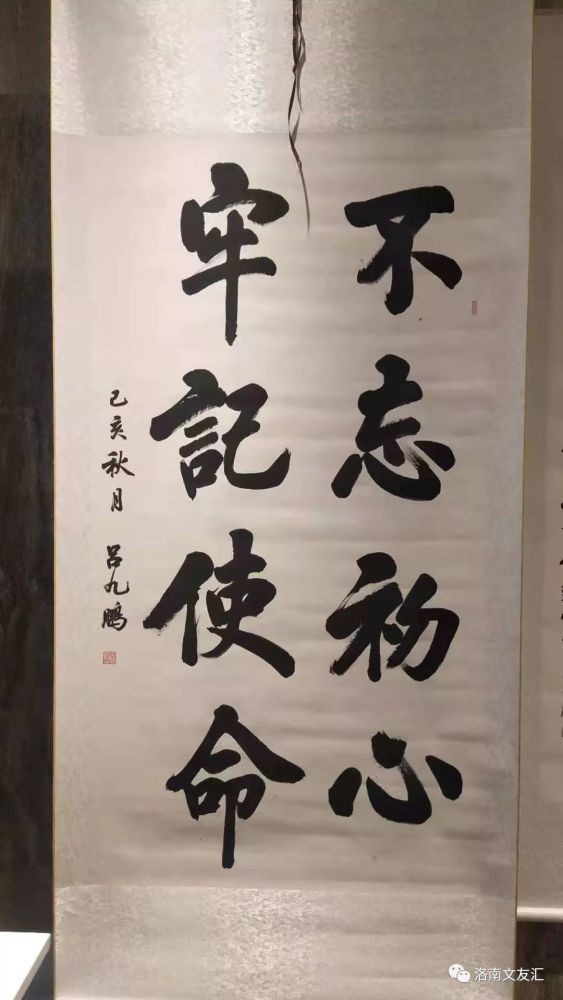 不忘初心
牢記使命
己亥秋月 吕九鹏
洛南文友汇